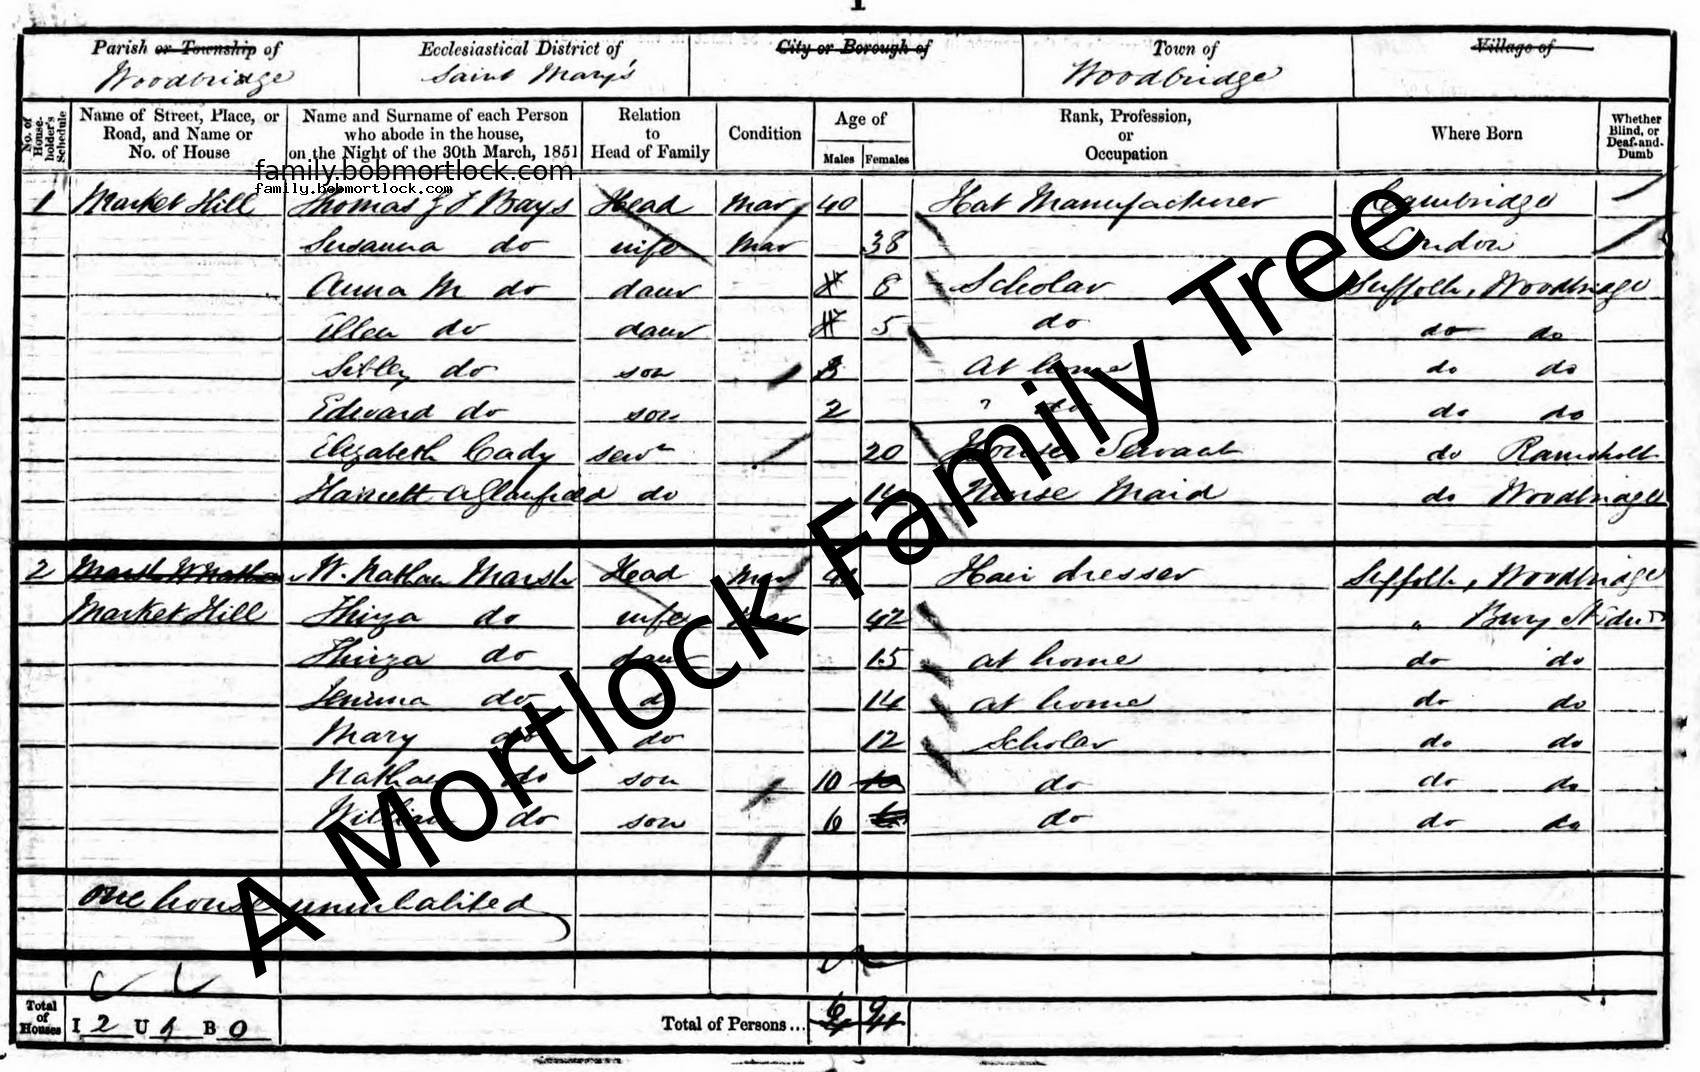 Parish or Township of
Woodbridge
Ecclesiastical District of
Saint Mary's
City or Borough of
Town of
Woodbridge
Village of
No. of House-holder's Schedule
Name of Street, Place, or Road, and Name or No. of House
Name and Surname of each Person who abode in the house, on the Night of the 30th March, 1851
Relation to Head of Family
Condition
Age of
Males Females
Rank, Profession, or Occupation
Where Born
Whether Blind, or Deaf-and-Dumb
family.bobmortlock.com
family.bobmortlock.com
1 Market Hill Thomas G F Bays Head Mar 40 Hat Manufacturer Cambridge
Susanna do wife Mar 38 London
Anna M do daur 8 Scholar Suffolk, Woodbridge
Ellen do daur 5 do do do
Sibley do son 3 At home do do
Edward do son 2 " do do do
Elizabeth Cady servt 20 House Servant do Ramsholt
Harriett do 14 Nurse Maid do Woodbridge
2 Marsh W Nathan W. Nathan Marsh Head Mar Hair dresser Suffolk, Woodbridge
Market Hill Thirza do wife Mar 42 " Bury St Edms
Thirza do daur 15 at home do do
Jemima do do 14 at home do do
Mary do do 12 Scholar do do
Nathan do son 10 do do do
William do son 6 do do do
one house uninhabited
Total of Houses I 2 U 1 B 0
Total of Persons... 6 9
A Mortlock Family Tree